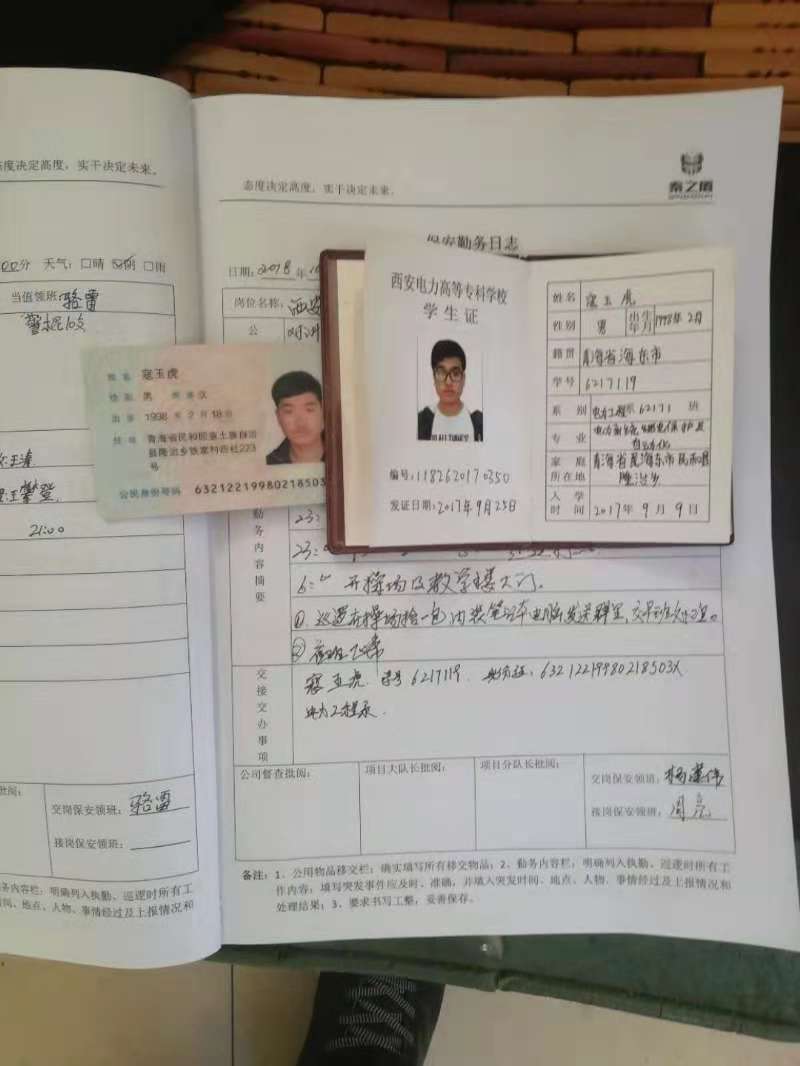 态度决定高度，实干决定未来。
00分 天气：□晴 ☑阴 □雨
当值领班：骆雷
21:00
批阅：
交岗保安领班：骆雷
接岗保安领班：
务内容栏：明确列入执勤、巡逻时所有工
间、地点、人物、事情经过及上报情况和
态度决定高度，实干决定未来。
秦之盾
保安勤务日志
日期：2018年10
岗位名称：西安
公
姓名 寇玉虎
性别 男 民族 汉
出生 1998年2月18日
住址 青海省民和回族土族自治
县隆治乡铁家村四社223
号
公民身份号码 63212219980218503
西安电力高等专科学校
学生证
编号：1182620170350
发证日期：2017年9月25日
姓名 寇玉虎
性别 男 出生年月 1998年2月
籍贯 青海省海东市
学号 6217119
系别 电力工程系 62171 班
专业
家庭所在地 青海省海东市民和县
隆治乡
入学时间 2017年9月9日
勤务内容摘要
23:
23:
6:00 开操场及教学楼大门。
①巡逻在操场拾一包内装笔记本电脑
②
交接交办事项
寇玉虎 学号6217119 身份证：63212219980218503X
电力工程系
公司督查批阅：
项目大队长批阅：
项目分队长批阅：
交岗保安领班：
接岗保安领班：周亮
备注：1、公用物品移交栏：确实填写所有移交物品；2、勤务内容栏：明确列入执勤、巡逻时所有工
作内容；填写突发事件应及时、准确，并填入突发时间、地点、人物、事情经过及上报情况和
处理结果；3、要求书写工整，妥善保存。